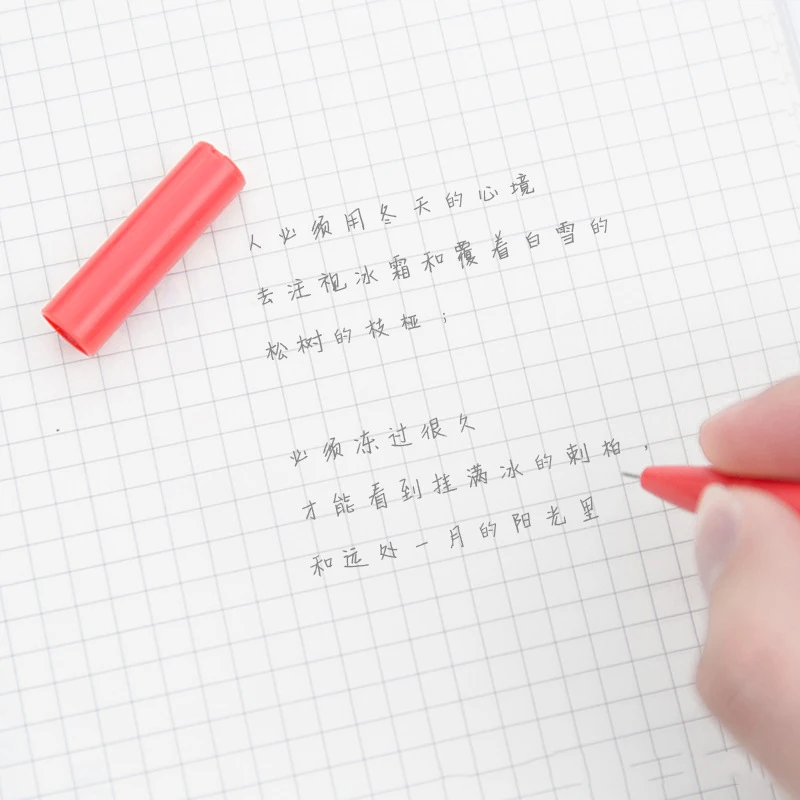 人必须用冬天的心境
去注视冰霜和覆着白雪的
松树的枝桠；
必须冻过很久
才能看到挂满冰的刺柏，
和远处一月的阳光里